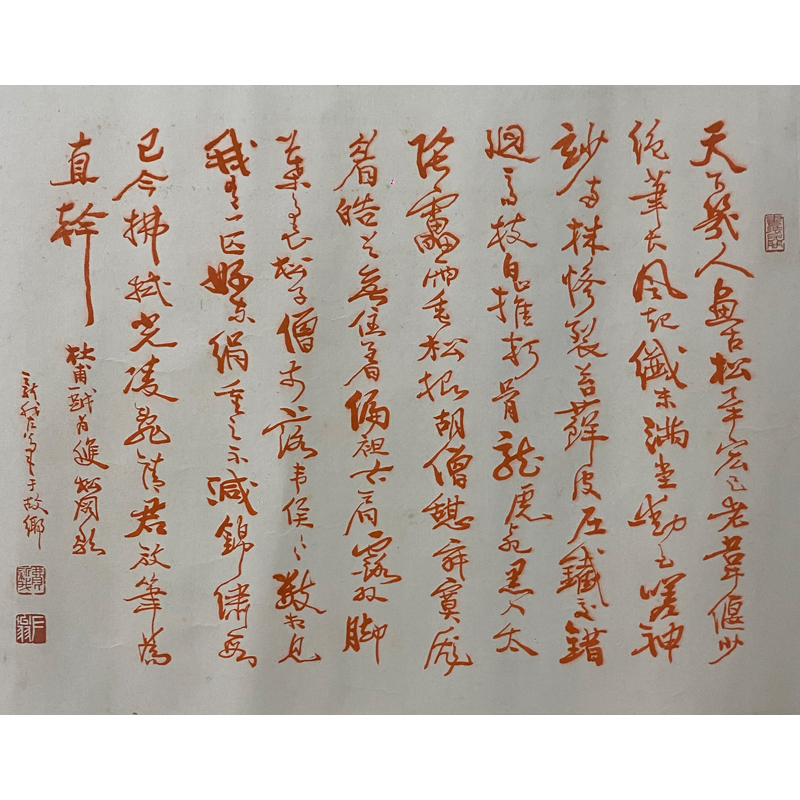 天下幾人畫古松畢宏已老韋偃少
絕筆長風起纖末滿堂動色嗟神
妙兩株慘裂苔蘚皮屈鐵交錯
迴高枝白摧朽骨龍虎死黑入太
陰雷雨垂松根胡僧憩寂寞龐
眉皓首無住着偏袒右肩露双脚
葉裏松子僧前落韋侯々數相見
我有一匹好東絹重之不減錦繡段
已令拂拭光凌亂請君放筆為
直幹
杜甫戲為雙松圖歌
于故鄉